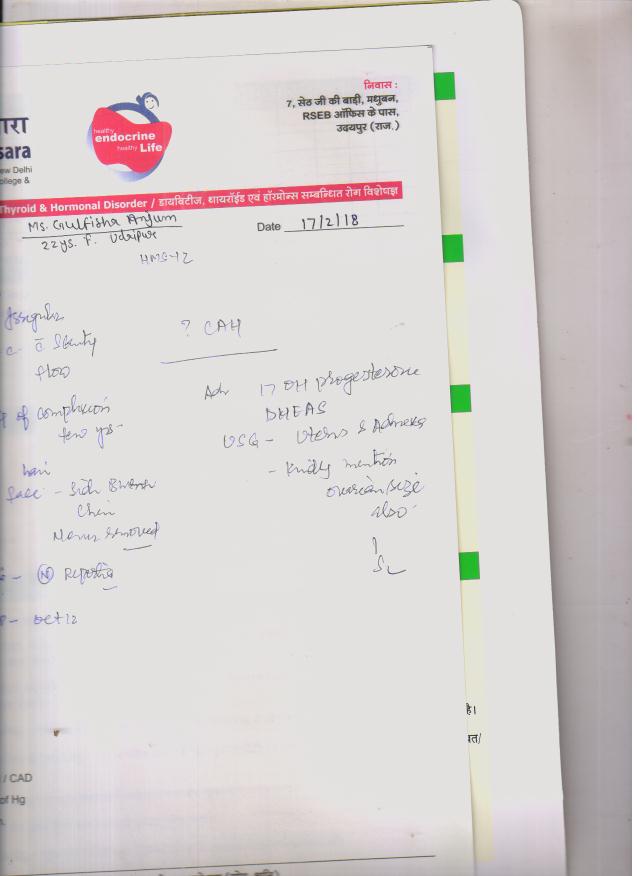 निवास :
7, सेठ जी की बाड़ी, मधुबन,
RSEB ऑफिस के पास,
उदयपुर (राज.)
ारा
sara
ew Delhi
ollege &
healthy
endocrine
healthy Life
Thyroid & Hormonal Disorder / डायबिटीज, थायरॉईड एवं हॉरमोन्स सम्बन्धित रोग विशेषज्ञ
Ms. Gulfisha Anjum
22 ys. F. Udaipur
Date 17/2/18
Irregular
? CAH
flow
Adv 17 OH progesterone
DHEAS
of complexion
few yrs-
USG - Uterus & Adnexa
- Kindly mention
ovarian size
also
hair
face -
Chin
Never removed
(N) Reports
oct 12
है।
/ CAD
of Hg